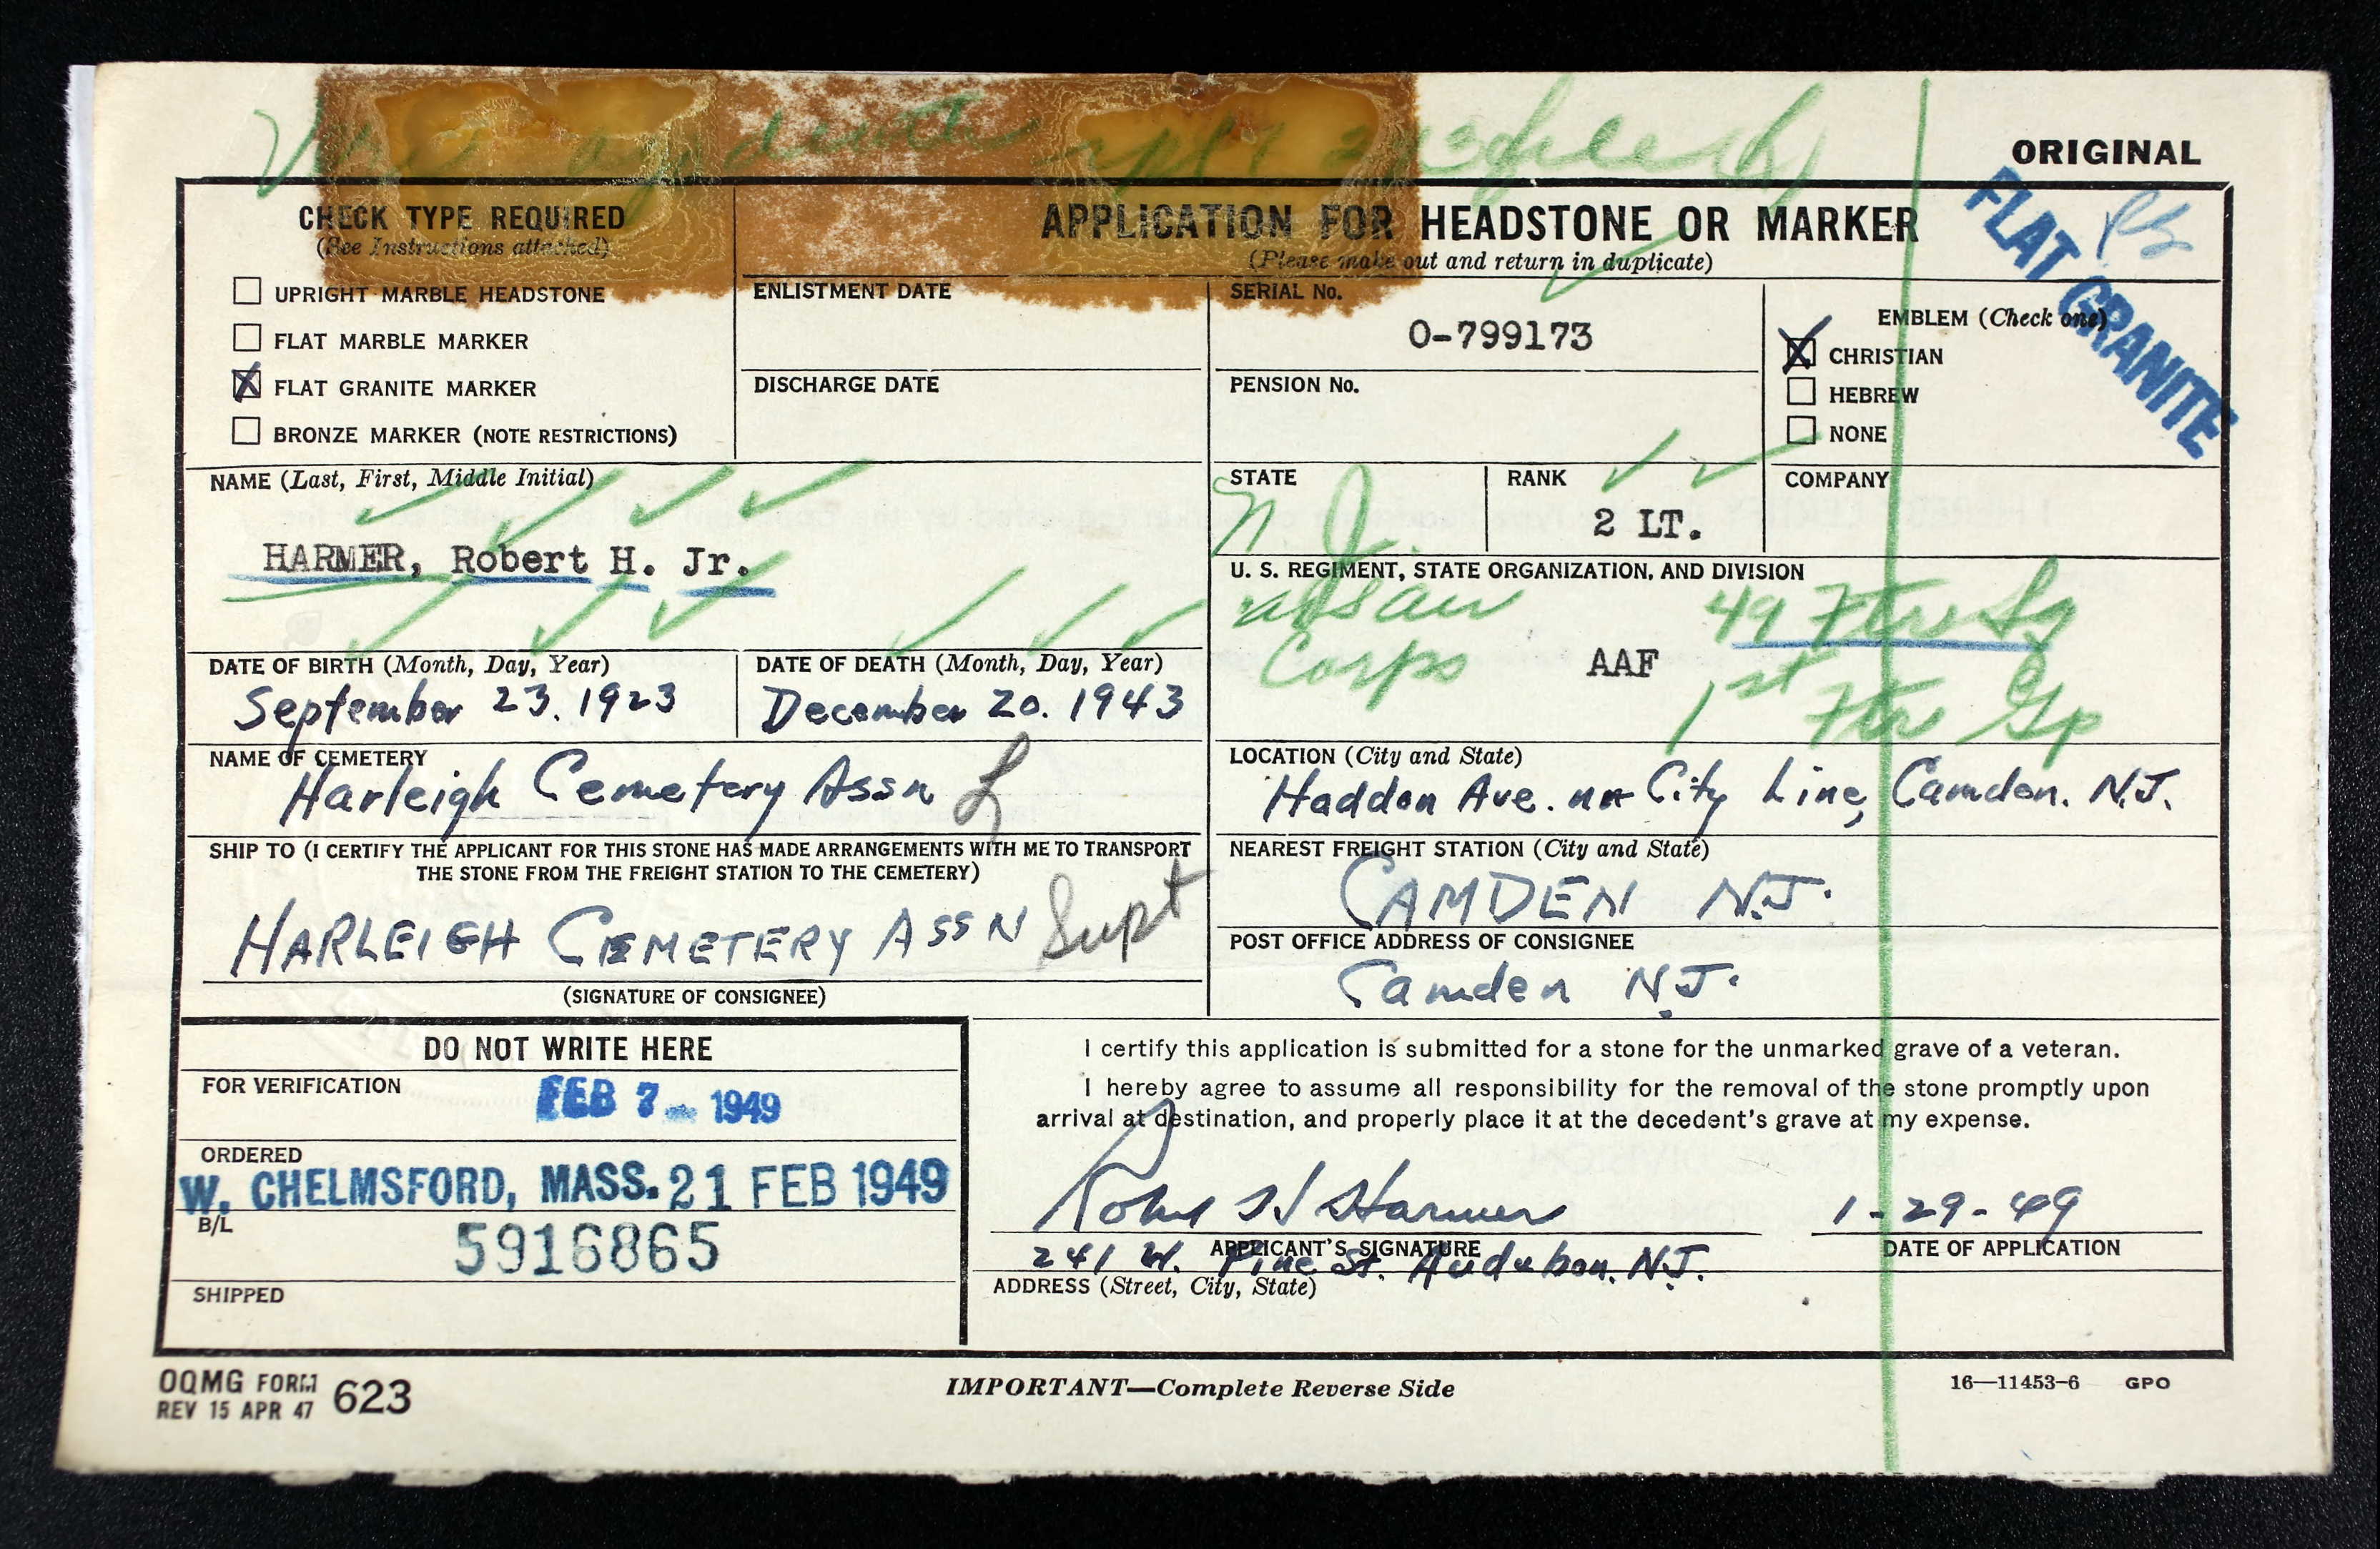 ORIGINAL
CHECK TYPE REQUIRED
(See Instructions attached)
UPRIGHT MARBLE HEADSTONE
FLAT MARBLE MARKER
FLAT GRANITE MARKER
BRONZE MARKER (NOTE RESTRICTIONS)
APPLICATION FOR HEADSTONE OR MARKER
(Please make out and return in duplicate)
ENLISTMENT DATE
DISCHARGE DATE
SERIAL No.
O-799173
PENSION No.
EMBLEM (Check one)
CHRISTIAN
HEBREW
NONE
FLAT GRANITE
NAME (Last, First, Middle Initial)
HARMER, Robert H. Jr.
STATE
N J
RANK
2 LT.
COMPANY
U. S. REGIMENT, STATE ORGANIZATION, AND DIVISION
49 Ftr Sq
Corps AAF
1st Ftr Gp
DATE OF BIRTH (Month, Day, Year)
September 23. 1923
DATE OF DEATH (Month, Day, Year)
December 20. 1943
NAME OF CEMETERY
Harleigh Cemetery Assn
LOCATION (City and State)
Haddon Ave. nr City Line, Camden. N.J.
SHIP TO (I CERTIFY THE APPLICANT FOR THIS STONE HAS MADE ARRANGEMENTS WITH ME TO TRANSPORT
THE STONE FROM THE FREIGHT STATION TO THE CEMETERY)
HARLEIGH CEMETERY ASSN Supt
(SIGNATURE OF CONSIGNEE)
NEAREST FREIGHT STATION (City and State)
CAMDEN N.J.
POST OFFICE ADDRESS OF CONSIGNEE
Camden N.J.
DO NOT WRITE HERE
FOR VERIFICATION
FEB 7 1949
ORDERED
W. CHELMSFORD, MASS. 21 FEB 1949
B/L
5916865
SHIPPED
I certify this application is submitted for a stone for the unmarked grave of a veteran.
I hereby agree to assume all responsibility for the removal of the stone promptly upon
arrival at destination, and properly place it at the decedent's grave at my expense.
Robert H Harmer
1-29-49
APPLICANT'S SIGNATURE
DATE OF APPLICATION
241 W. Pine St. Audubon. N.J.
ADDRESS (Street, City, State)
OQMG FORM 623
REV 15 APR 47
IMPORTANT—Complete Reverse Side
16—11453-6 GPO